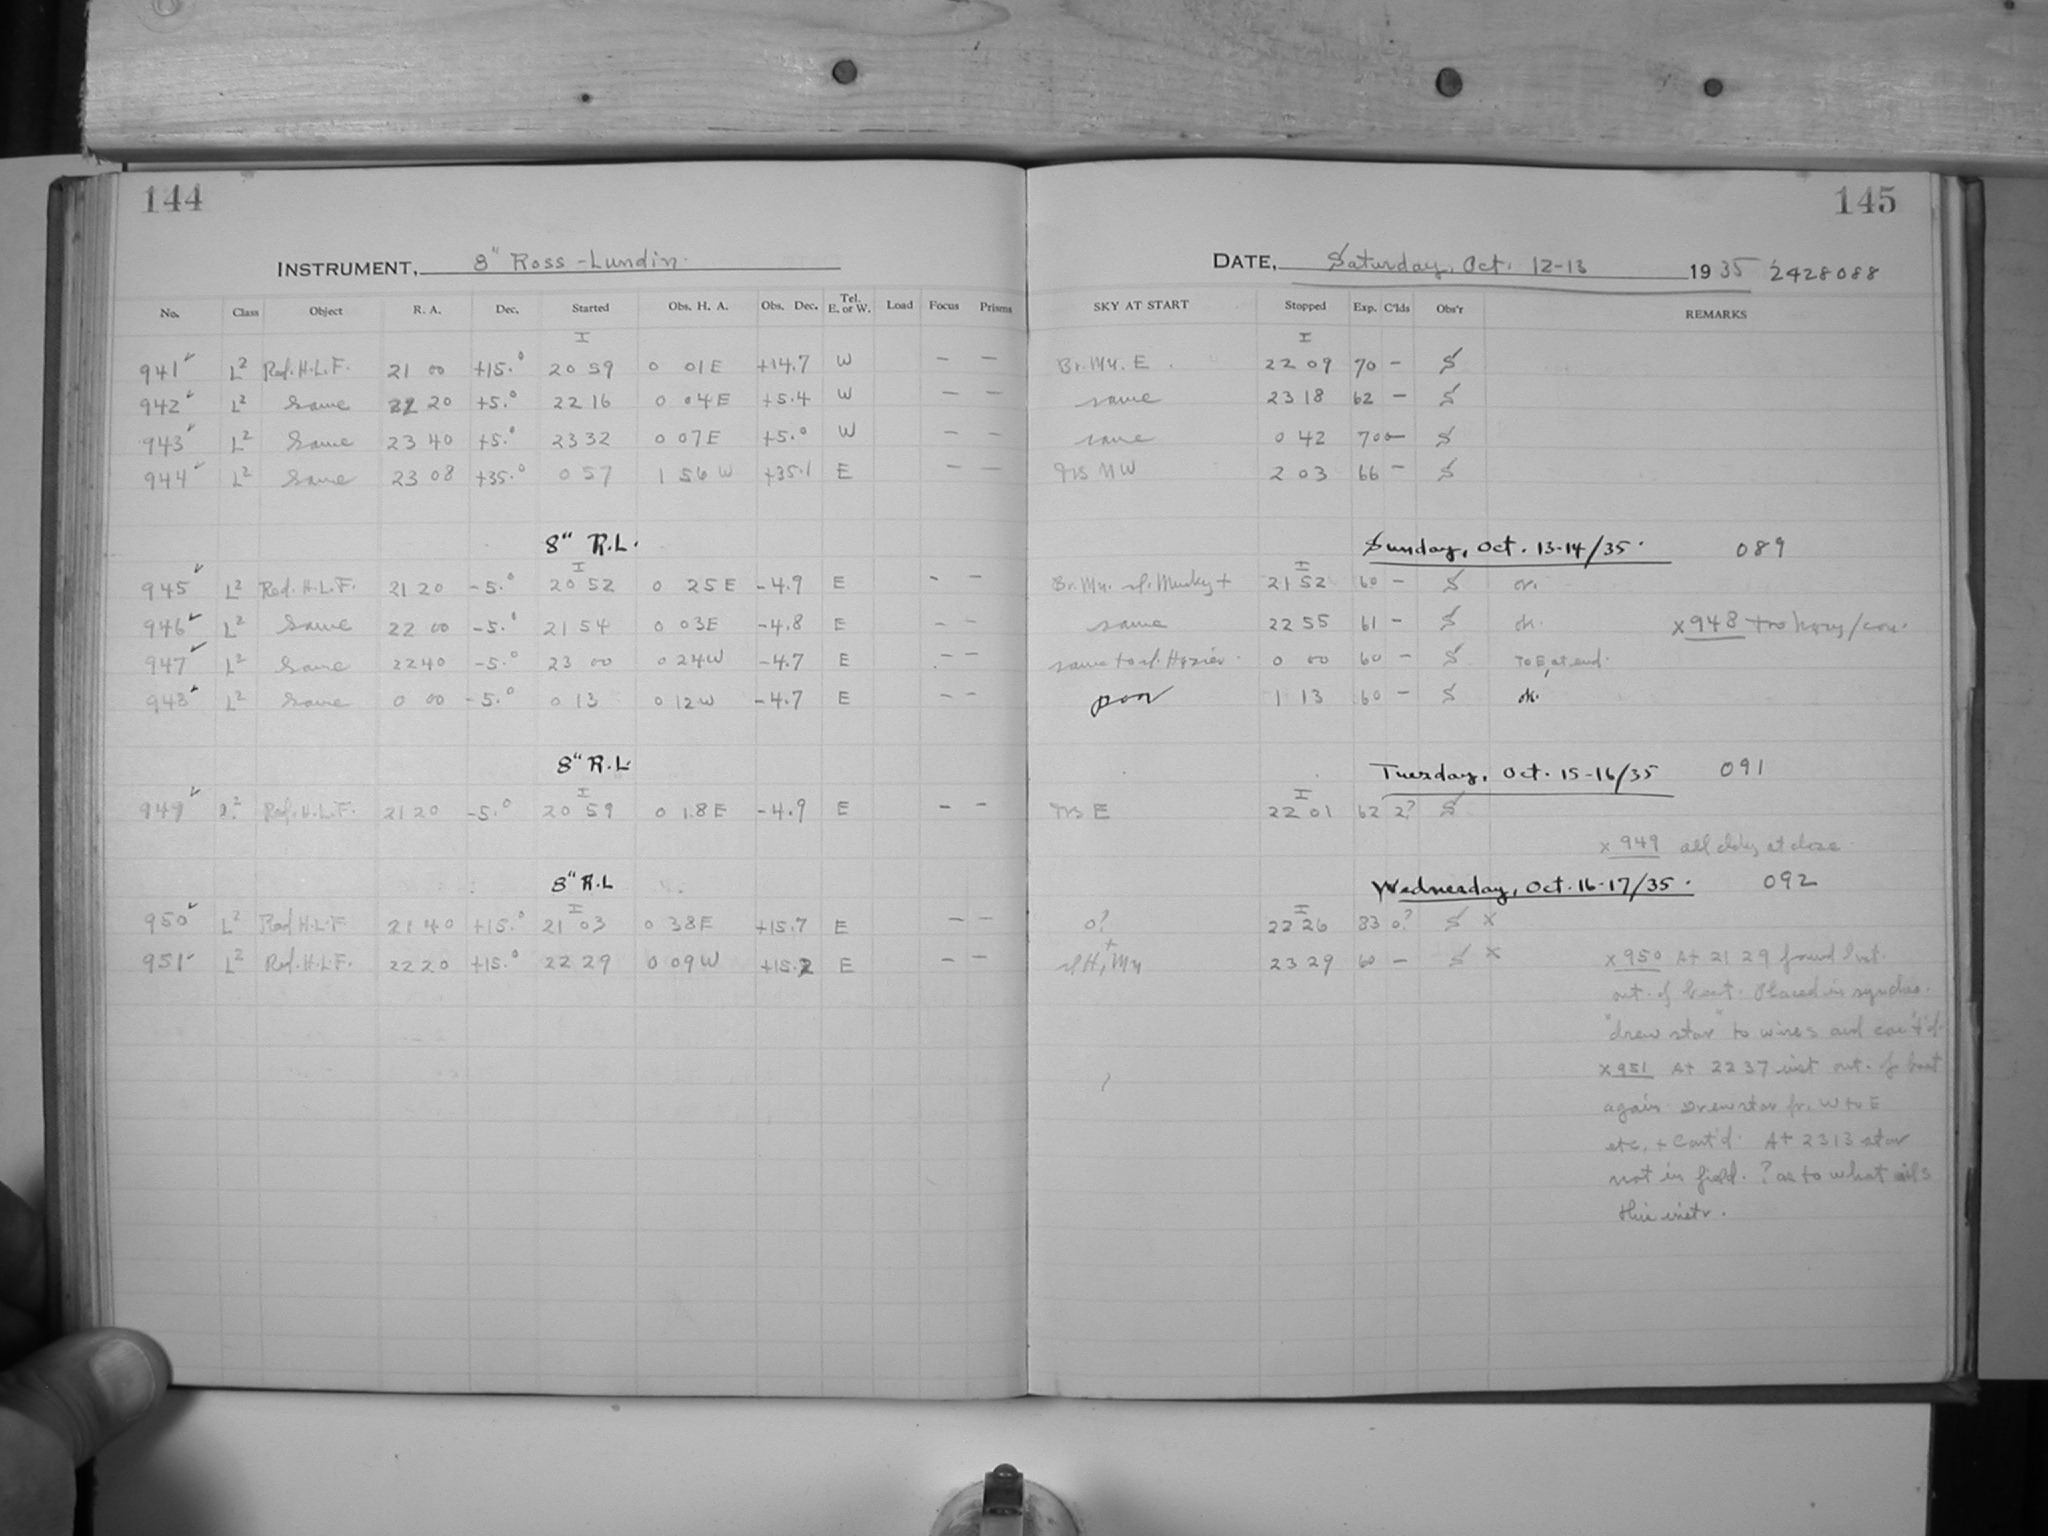 144
145
INSTRUMENT, 8" Ross-Lundin.
DATE, Saturday, Oct. 12-13 1935 2428088
No. Class Object R. A. Dec. Started Obs. H. A. Obs. Dec. Tel. E. or W. Load Focus Prisms SKY AT START Stopped Exp. C'lds Obs'r REMARKS
I I
941 ✓ L2 Red. H.L.F. 21 00 +15.0 20 59 0 01 E +14.7 W — — Br. My. E. 22 09 70 — S
942 ✓ L2 Same 22 20 +5.0 22 16 0 04 E +5.4 W — — same 23 18 62 — S
943 ✓ L2 Same 23 40 +5.0 23 32 0 07 E +5.0 W — — same 0 42 70 — S
944 ✓ L2 Same 23 08 +35.0 0 57 1 56 W +35.1 E — — NW 2 03 66 — S
8" R.L. Sunday, Oct. 13-14/35. 089
I I
945 ✓ L2 Red. H.L.F. 21 20 -5.0 20 52 0 25 E -4.9 E - — Br. My. sl. Murky + 21 52 60 — S ok.
946 ✓ L2 Same 22 00 -5.0 21 54 0 03 E -4.8 E - — same 22 55 61 — S ok. x 948
947 ✓ L2 Same 22 40 -5.0 23 00 0 24 W -4.7 E — — same to sl. Hazier. 0 00 60 — S To E, at end.
948 ✓ L2 Same 0 00 -5.0 0 13 0 12 W -4.7 E — — poor 1 13 60 — S ok.
8" R.L. Tuesday, Oct. 15-16/35 091
I I
949 ✓ L2 Red. H.L.F. 21 20 -5.0 20 59 0 18 E -4.9 E — — E 22 01 62 2? S
x 949 all cldy at close.
8" R.L Wednesday, Oct. 16-17/35. 092
I I
950 ✓ L2 Red H.L.F 21 40 +15.0 21 03 0 38 E +15.7 E — — 0? 22 26 83 0? S x
951 ✓ L2 Red. H.L.F. 22 20 +15.0 22 29 0 09 W +15.2 E — — sl H, My 23 29 60 — S x x 950 At 21 29 found inst.
out of beat. Placed in synchro.
"drew star" to wires and cont'd.
x 951 At 22 37 inst out of beat
again Drew star fr. W to E
etc. + Cont'd. At 23 13 star
not in field. ? as to what ails
this instr.